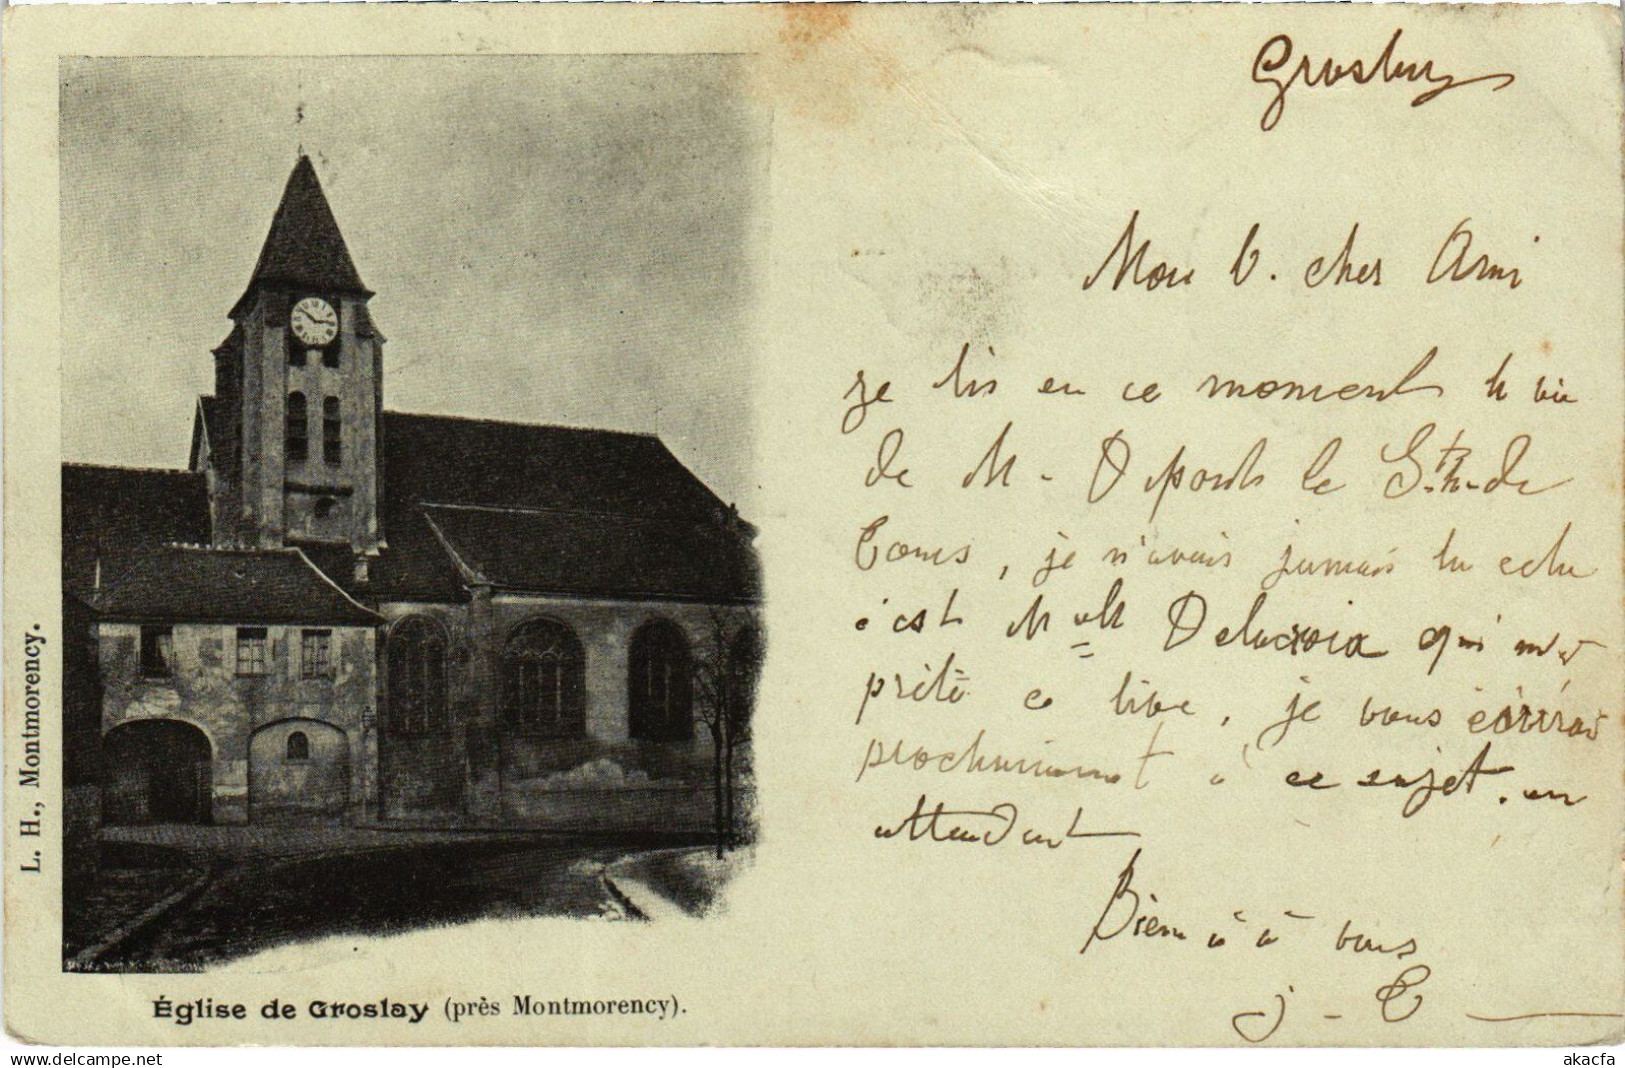 Groslay
Mon b. cher Ami
je lis en ce moment la vie
de M. Dupont le St h. de
Tours, je n'avais jamais lu cela
c'est Mell Delacroix qui m'a
prêté ce livre, je vous écrirai
prochainement à ce sujet. en
attendant
Bien à à vous
j. C
L. H., Montmorency.
Église de Groslay (près Montmorency).
www.delcampe.net
akacfa